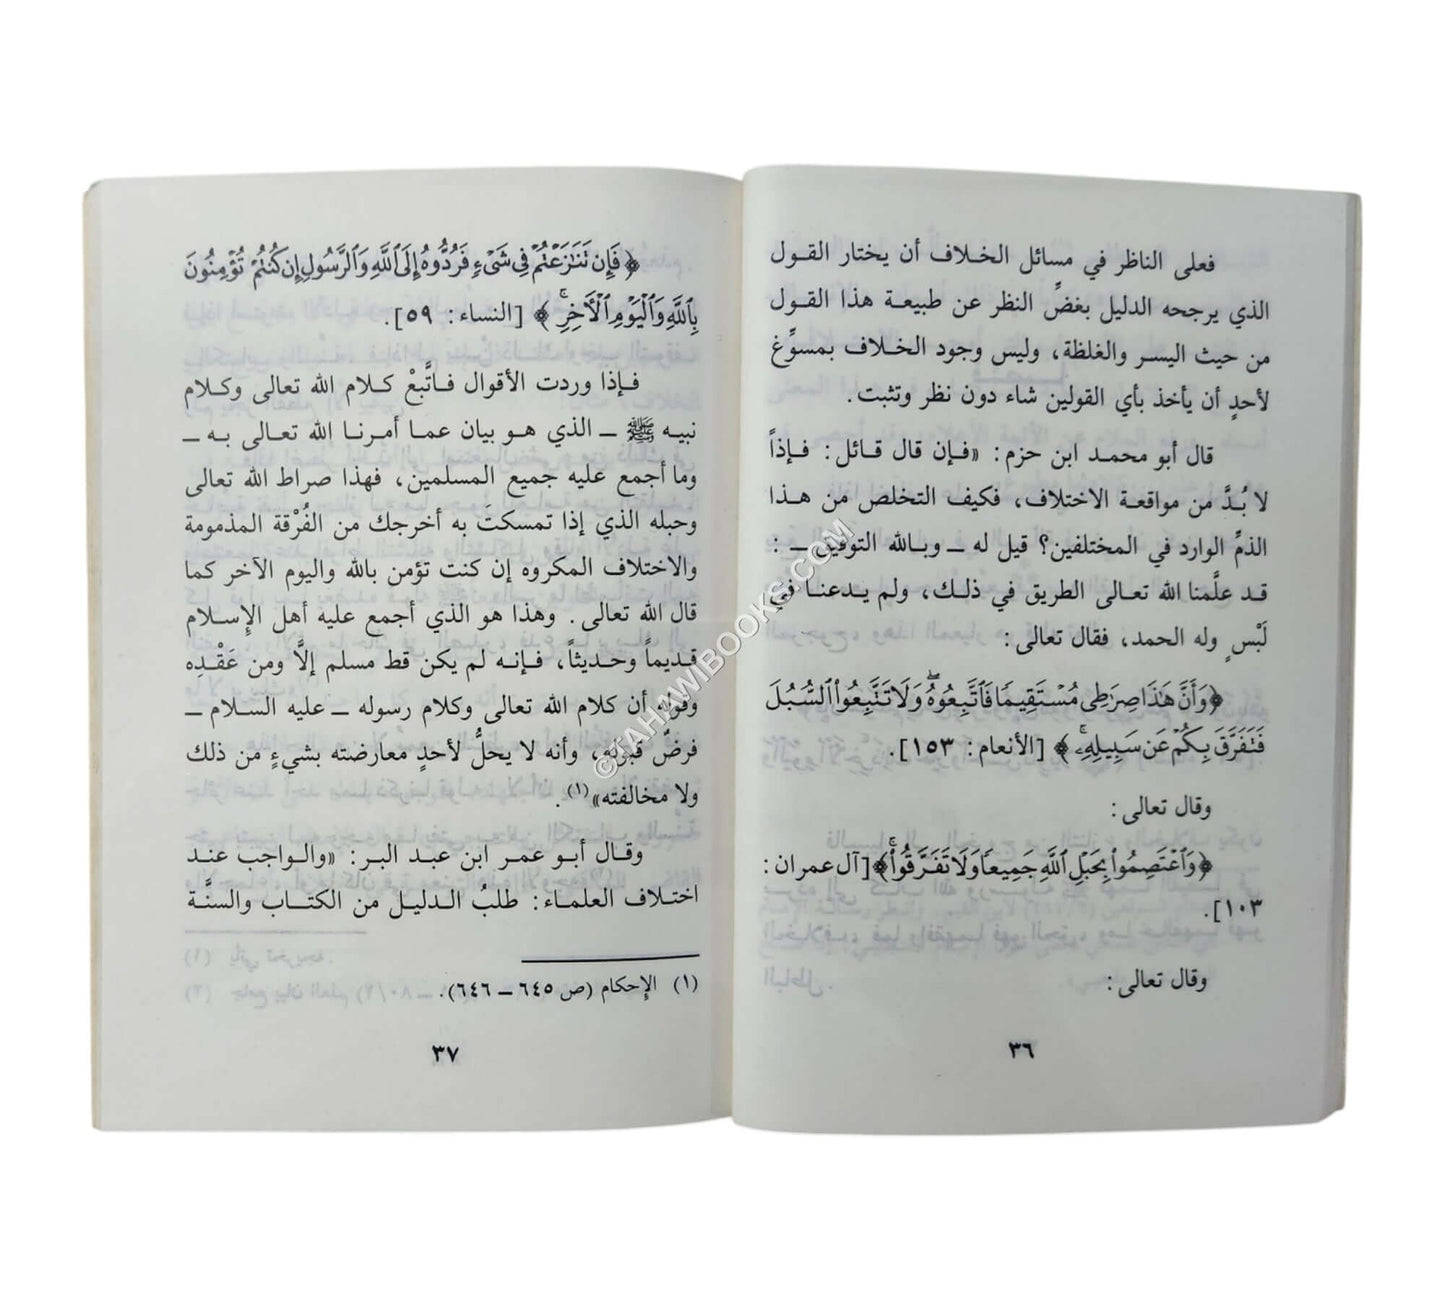 فعلى الناظر في مسائل الخلاف أن يختار القول
الذي يرجحه الدليل بغضِّ النظر عن طبيعة هذا القول
من حيث اليسر والغلظة، وليس وجود الخلاف بمسوِّغ
لأحدٍ أن يأخذ بأي القولين شاء دون نظر وتثبت.
قال أبو محمد ابن حزم: «فإن قال قائل: فإذاً
لا بُدَّ من مواقعة الاختلاف، فكيف التخلص من هذا
الذمِّ الوارد في المختلفين؟ قيل له ــ وبالله التوفيق ــ :
قد علَّمنا الله تعالى الطريق في ذلك، ولم يدعنا في
لَبْسٍ وله الحمد، فقال تعالى:
﴿وَأَنَّ هَٰذَا صِرَٰطِى مُسْتَقِيمًا فَٱتَّبِعُوهُ ۖ وَلَا تَتَّبِعُوا۟ ٱلسُّبُلَ
فَتَفَرَّقَ بِكُمْ عَن سَبِيلِهِۦ ۚ﴾ [الأنعام: ١٥٣].
وقال تعالى:
﴿وَٱعْتَصِمُوا۟ بِحَبْلِ ٱللَّهِ جَمِيعًا وَلَا تَفَرَّقُوا۟ ۚ﴾ [آل عمران:
١٠٣].
وقال تعالى:
٣٦
﴿فَإِن تَنَٰزَعْتُمْ فِى شَىْءٍ فَرُدُّوهُ إِلَى ٱللَّهِ وَٱلرَّسُولِ إِن كُنتُمْ تُؤْمِنُونَ
بِٱللَّهِ وَٱلْيَوْمِ ٱلْءَاخِرِ ۚ﴾ [النساء: ٥٩].
فإذا وردت الأقوال فاتَّبعْ كلام الله تعالى وكلام
نبيه ﷺ ــ الذي هو بيان عما أمرنا الله تعالى به ــ
وما أجمع عليه جميع المسلمين، فهذا صراط الله تعالى
وحبله الذي إذا تمسكتَ به أخرجك من الفُرْقة المذمومة
والاختلاف المكروه إن كنت تؤمن بالله واليوم الآخر كما
قال الله تعالى. وهذا هو الذي أجمع عليه أهل الإسلام
قديماً وحديثاً، فإنه لم يكن قط مسلم إلاَّ ومن عَقْدِه
وقوله أن كلام الله تعالى وكلام رسوله ــ عليه السلام ــ
فرضٌ قبوله، وأنه لا يحلُّ لأحدٍ معارضته بشيءٍ من ذلك
ولا مخالفته»(١).
وقال أبو عمر ابن عبد البر: «والواجب عند
اختلاف العلماء: طلبُ الدليل من الكتاب والسنَّة
(١) الإحكام (ص ٦٤٥ ــ ٦٤٦).
٣٧
©TAHAWIBOOKS.COM